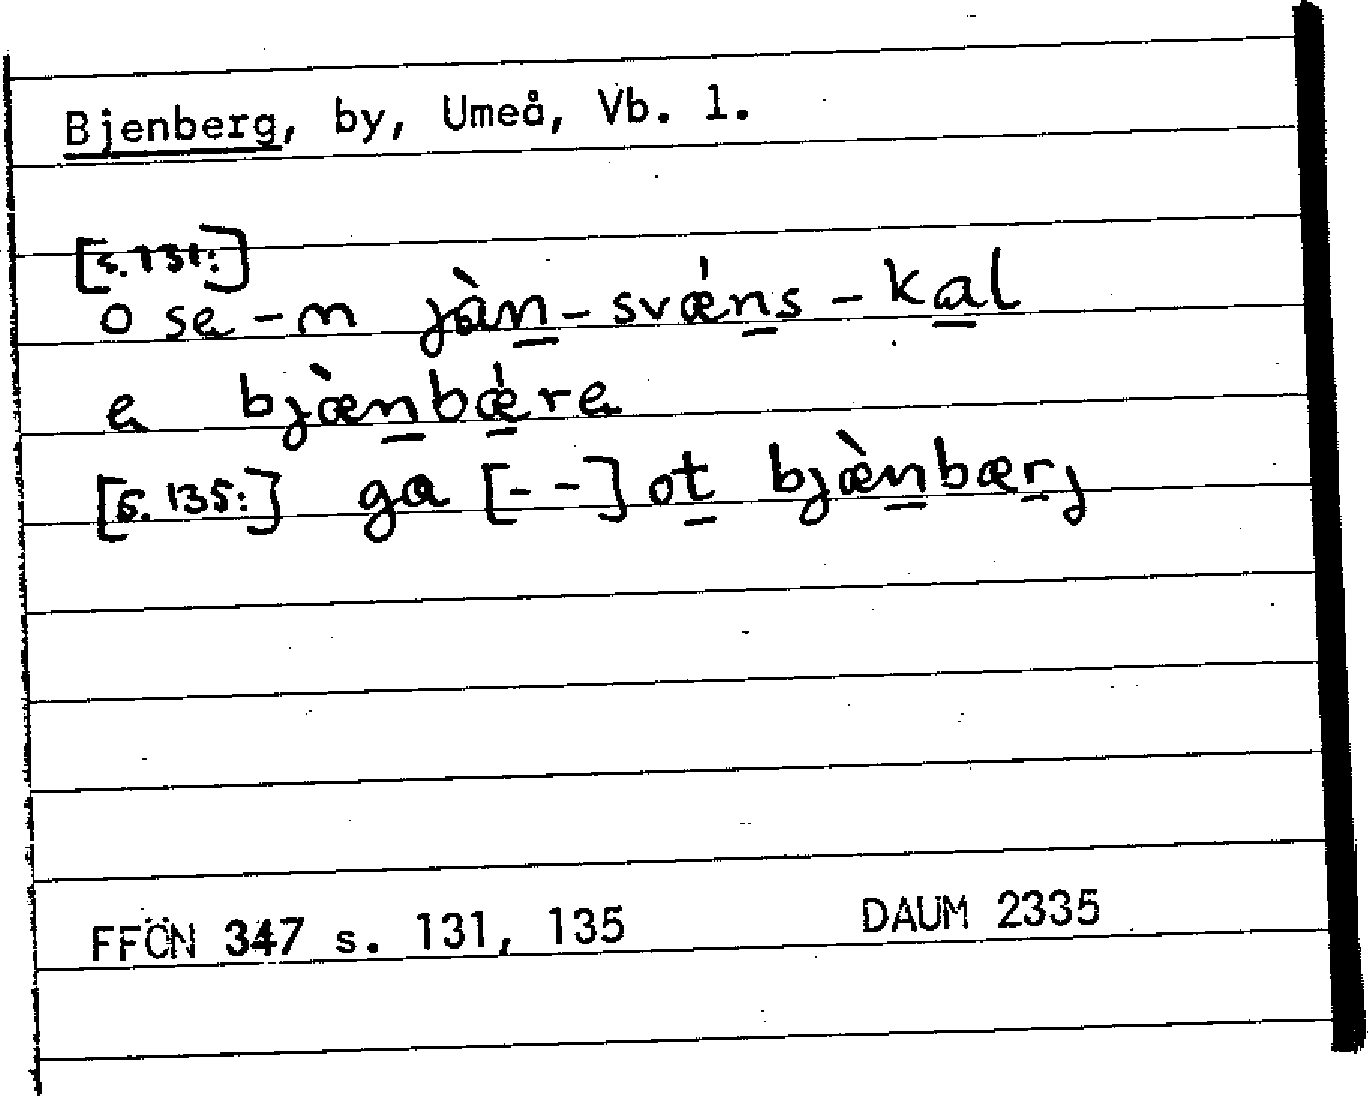 Bjenberg, by, Umeå, Vb. 1.
[s. 131:]
o se - m jàn̲ - svǽn̲s - ka̲l
e bjæ̀n̲bǽ̲re
[s. 135:] ga [- -] ot̲ bjæ̀n̲bær̲j
FFÖN 347 s. 131, 135 DAUM 2335